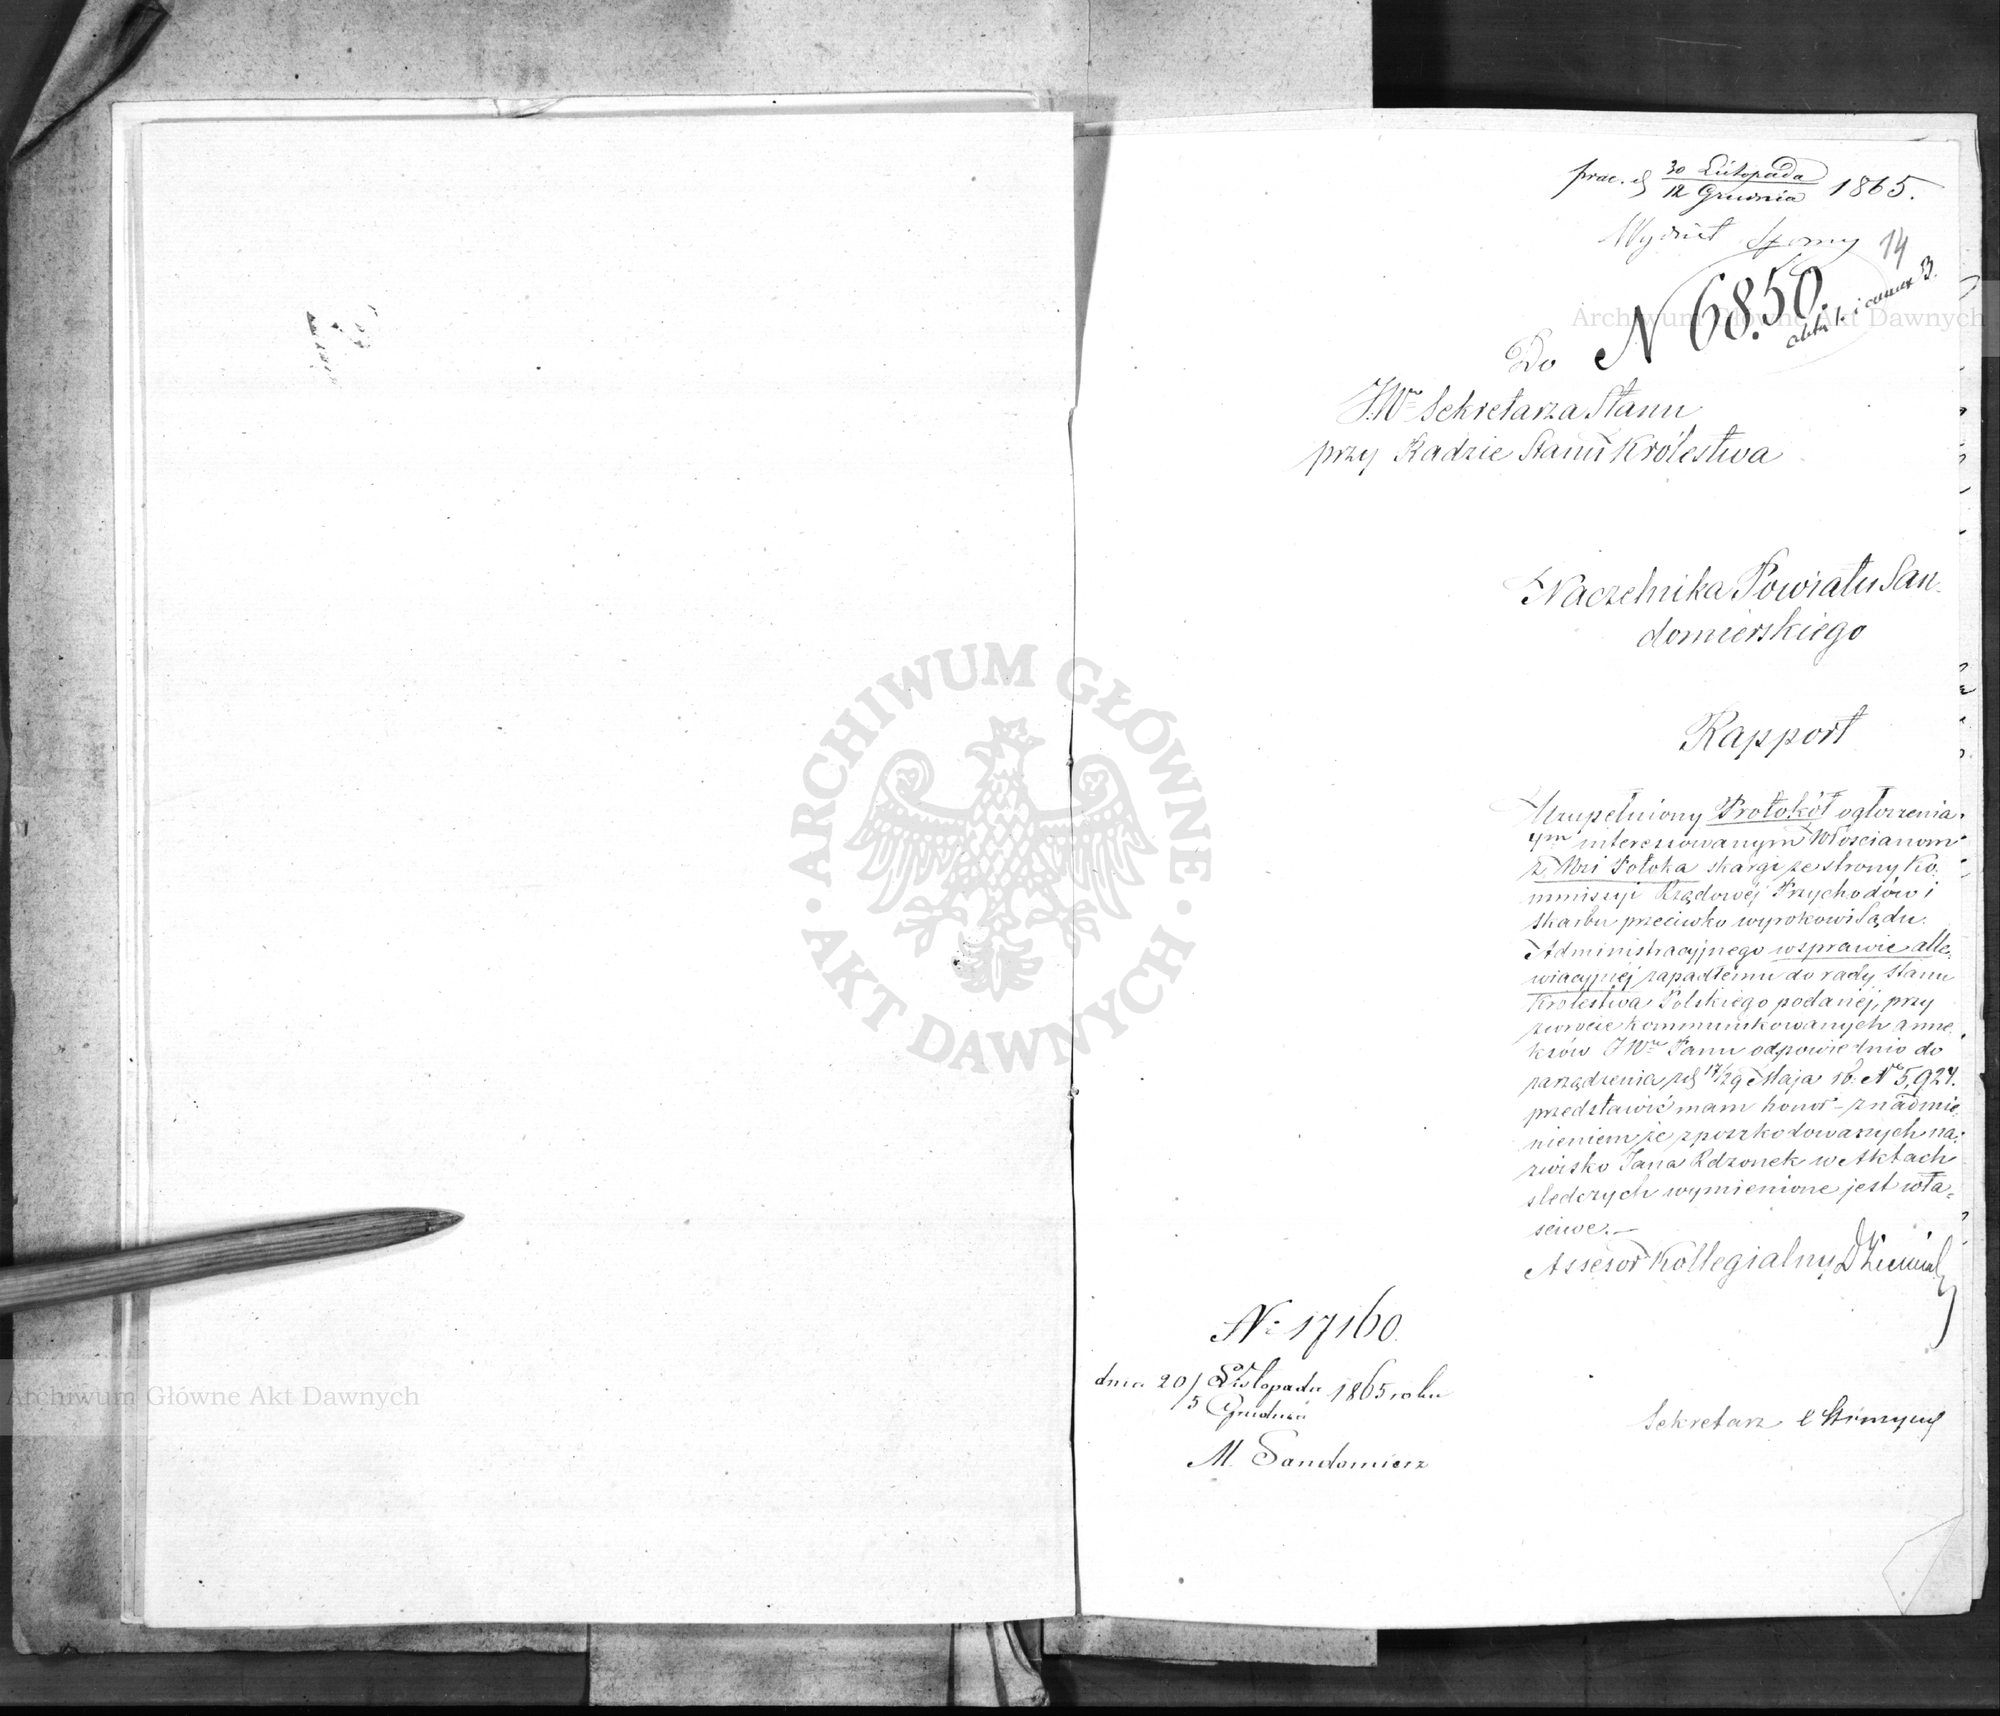 30 Listopada
12 Grudnia 1865.
Wydział Sporny 14
N 6850.
Do
JWo Sekretarza Stanu
przy Radzie Stanu Królestwa
Naczelnika Powiatu San-
domierskiego
Rapport
Uzupełniony Protokół ogłoszenia
interessowanym Włościanom
z Wsi Potoka skargi ze strony Ko-
mmissyi Rządowéj Przychodów i
Skarbu przeciwko wyrokowi Sądu
Administracyjnego w sprawie alle-
wiacyjnej zapadłemu do rady Stanu
Królestwa Polskiego podanej, przy
zwrocie kommunikowanych anne-
ksów JWu Panu odpowiednio do
zarządzenia zd 17/29 Maja rb. No 5,924.
przedstawić mam honor – z nadmie-
nieniem że z poszkodowanych na-
zwisko Jana Rdzonek w Aktach
sledczych wymienione jest wła-
sciwe. –
Assesor Kollegialny
No 17160.
dnia 20/ Listopada 1865 roku
/5 Grudnia
M. Sandomierz
Sekretarz
Archiwum Główne Akt Dawnych
ARCHIWUM GŁÓWNE
AKT DAWNYCH
Archiwum Główne Akt Dawnych